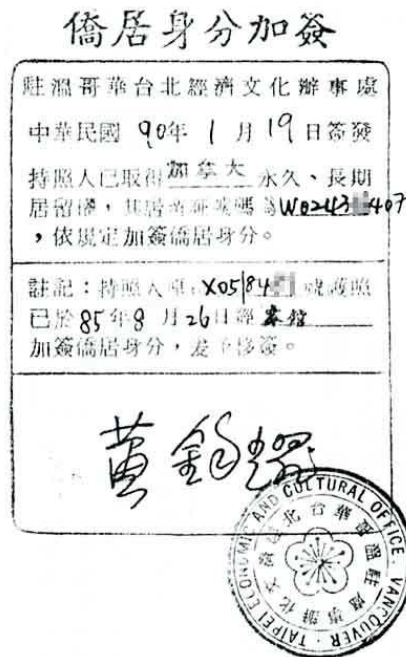 僑居身分加簽
駐溫哥華台北經濟文化辦事處
中華民國 90年 1 月 19 日簽發
持照人已取得 加拿大 永久、長期
居留權,其居留證號碼為W0243 407
,依規定加簽僑居身分。
註記:持照人原 X0584 號護照
已於 85年 8 月 26日經 本館
加簽僑居身分,茲予移簽。
黃
TAIPEI ECONOMIC AND CULTURAL OFFICE, VANCOUVER
駐溫哥華台北經濟文化辦事處